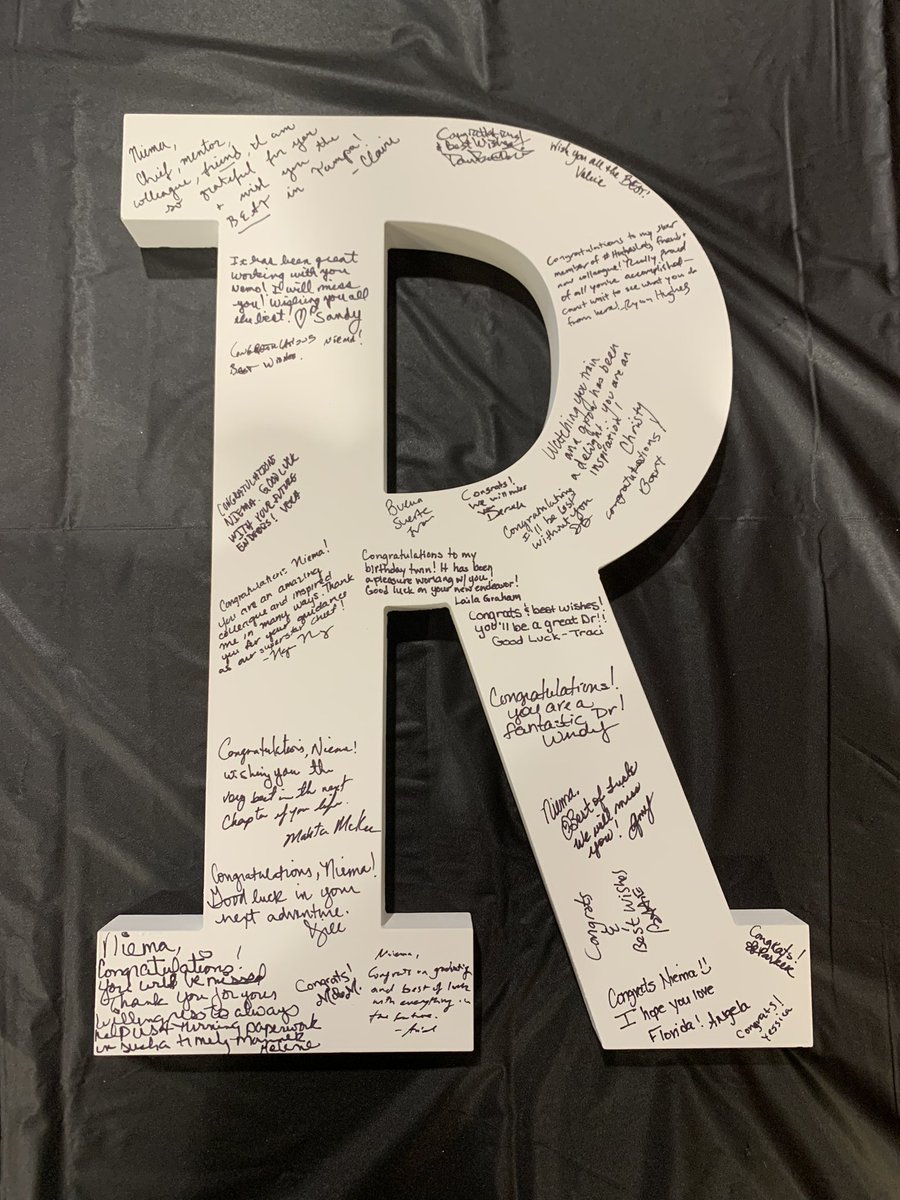 Niema,
Chief, mentor,
colleague friend, I am
so grateful for you
+ wish you the
BEST in Tampa!
- Claire
Congratulations
& best Wishes
Wish you all the BEST!
Valerie
Congratulations to my star
member of #HughesLab, friend +
now colleague! Really proud
of all you've accomplished—
can't wait to see what you do
from here! -Ryan Hughes
It has been great
working with you
Nemo! I will miss
you! Wishing you all
the best! ♡ Sandy
CONGRATULATIONS NIEMA!
BEST WISHES.
Watching you train
and grow has been
a delight. you are an
inspiration!
Christy
congratulations!
CONGRATULATIONS
NIEMA. GOOD LUCK
WITH YOUR FUTURE
ENDEAVORS!
Buena
Suerte
Congrats!
We will miss
you
Derek
Congratulations
I'll be lost
without you
Congratulations Niema!
You are an amazing
colleague and inspired
me in many ways. Thank
you for your guidance
as our superstar chief!
Congratulations to my
birthday twin! It has been
a pleasure working w/ you!
Good luck on your new endeavor!
Laila Graham
Congrats & best wishes!
you'll be a great Dr!!
Good Luck - Traci
Congratulations!
you are a
fantastic Dr!
Wendy
Congratulations, Niema!
wishing you the
very best in the next
chapter of your life.
Niema,
Best of luck
we will miss
you! Amy
Congratulations, Niema!
Good luck in your
next adventure.
Congrats
&
Best Wishes
Niema,
Congratulations!
You will be missed
Thank you for your
willingness to always
help us turning paperwork
in such a timely manner
Helene
Congrats!
Niema,
Congrats on graduating
and best of luck
with everything in
the future.
Congrats!
Parker
Congrats Niema!!
I hope you love
Florida! Angela
Congrats!
Yessica